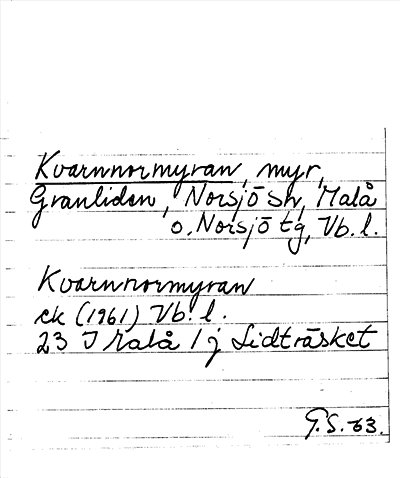 Kvarnnormyran, myr,
Granliden, Norsjö sn, Malå
o. Norsjö tg, Vb. l.
Kvarnnormyran
ek (1961) Vb. l.
23 I Malå 1 j Lidträsket
G.S. -63.